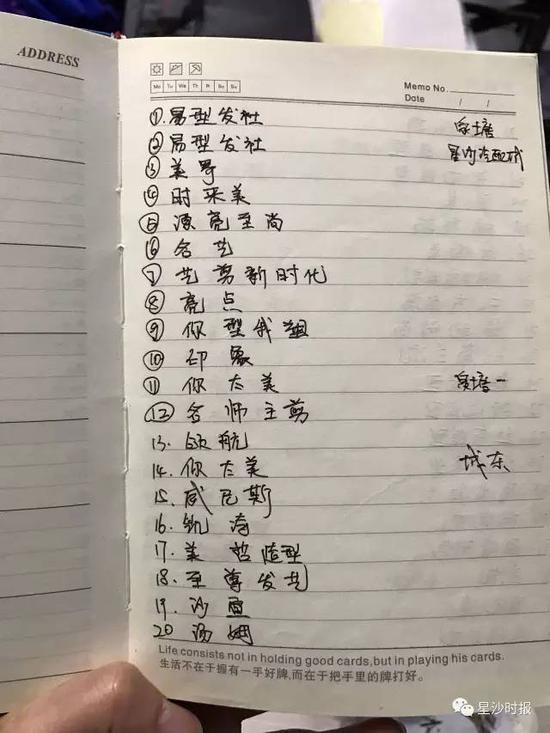 ADDRESS
Memo No.
Mo Tu We Th Fr Sa Su
Date / /
①易型发社
②易型发社
③美号
④时采美
⑤源亮至尚
⑥名艺
⑦艺剪新时代
⑧亮点
⑨你型我塑
⑩印象
⑪你太美
⑫名师主剪
13.领航
14.你太美 城东
15.威尼斯
16.凯涛
17.美哲造型
18.至尊发艺
19.沙宣
20 汤姆
Life consists not in holding good cards,but in playing his cards.
生活不在于握有一手好牌,而在于把手里的牌打好。
星沙时报